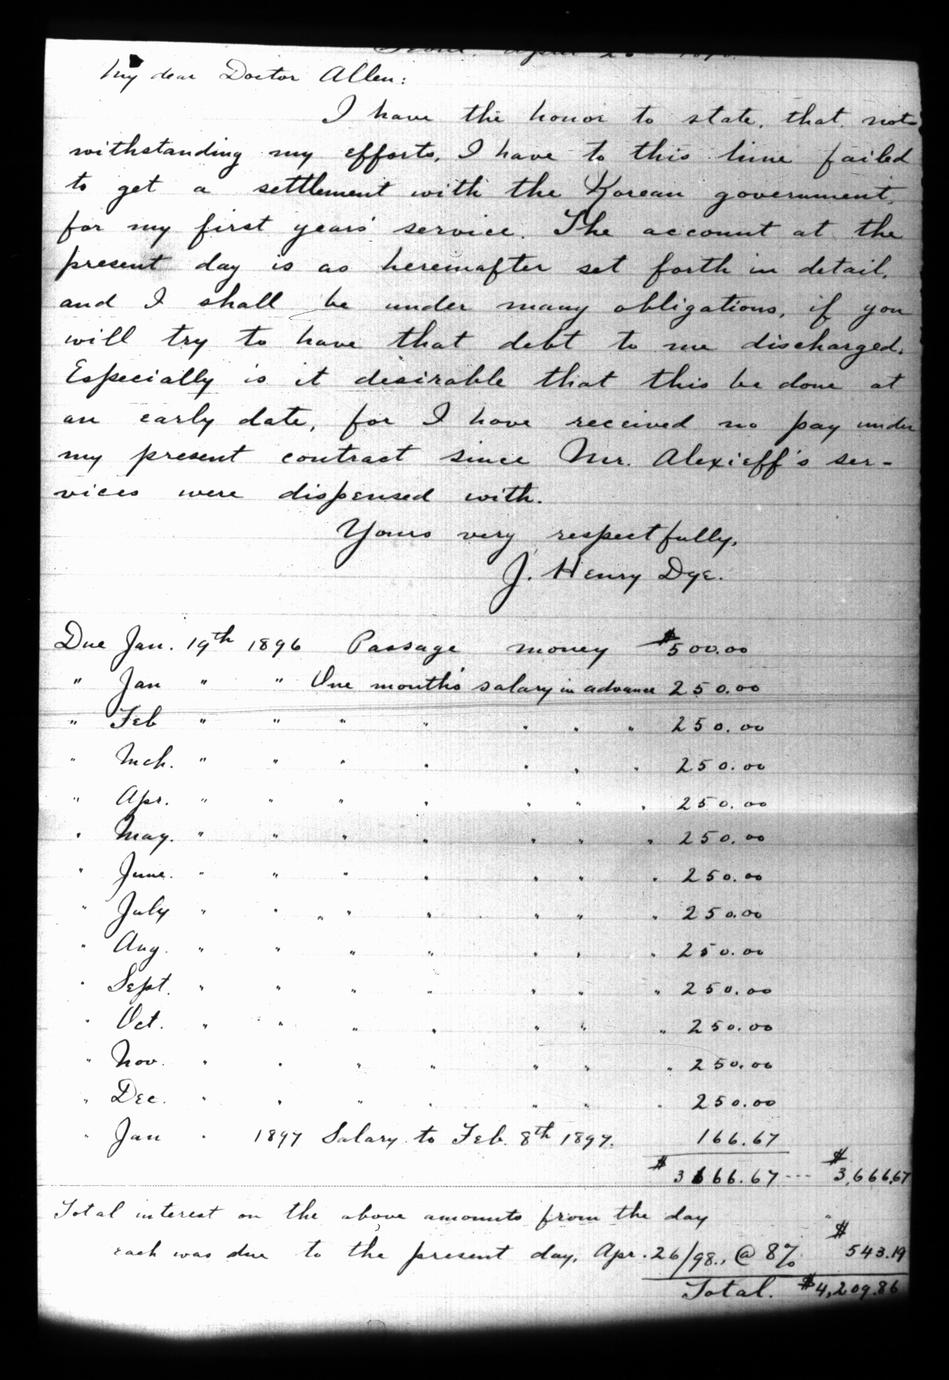 My dear Doctor Allen:
I have the honor to state, that not-
withstanding my efforts, I have to this time failed
to get a settlement with the Korean government,
for my first years' service. The account at the
present day is as hereinafter set forth in detail,
and I shall be under many obligations, if you
will try to have that debt to me discharged.
Especially is it desirable that this be done at
an early date, for I have received no pay under
my present contract since Mr. Alexieff's ser-
vices were dispensed with.
Yours very respectfully,
J. Henry Dye.
Due Jan. 19th 1896 Passage money $500.00
" Jan " " One month's salary in advance 250.00
" Feb " " " " " " " 250.00
" Mch. " " " " " " " 250.00
" Apr. " " " " " " " 250.00
" May. " " " " " " " 250.00
" June. " " " " " " " 250.00
" July " " " " " " " " 250.00
" Aug. " " " " " " " 250.00
" Sept. " " " " " " " 250.00
" Oct. " " " " " " " 250.00
" Nov. " " " " " " " 250.00
" Dec. " " " " " " " 250.00
" Jan " 1897 Salary to Feb. 8th 1897. 166.67
$3666.67 --- $3,666.67
Total interest on the above amounts from the day "
each was due to the present day, Apr. 26/98., @ 8% $543.19
Total. $4,209.86